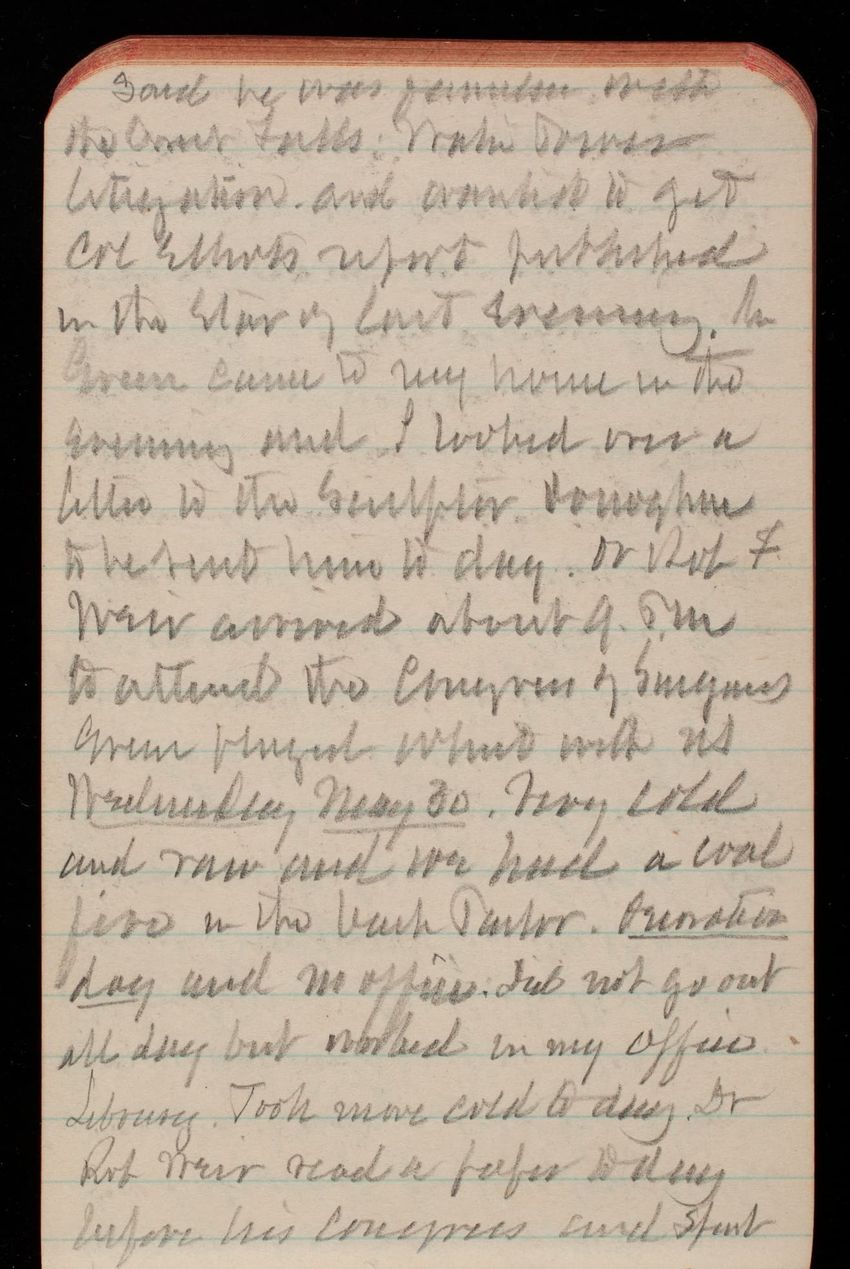 Said he was familiar with
the Great Falls: Water Power
litigation. and wanted to get
Col Elliots report published
in the Star of last evening. Mr
Green came to my home in the
evening and I looked over a
letter to the Sculptor Donoghue
to be sent him to day. Dr Rob F
Weir arrived about 9. P.M
to attend the Congress of Surgeons
Green played whist with us
Wednesday May 30. Very cold
and raw and we had a coal
fire in the back Parlor. Decoration
day and no office. Did not go out
all day but worked in my office
Library. Took more cold to day. Dr
Rob Weir read a paper to day
before his congress and spent